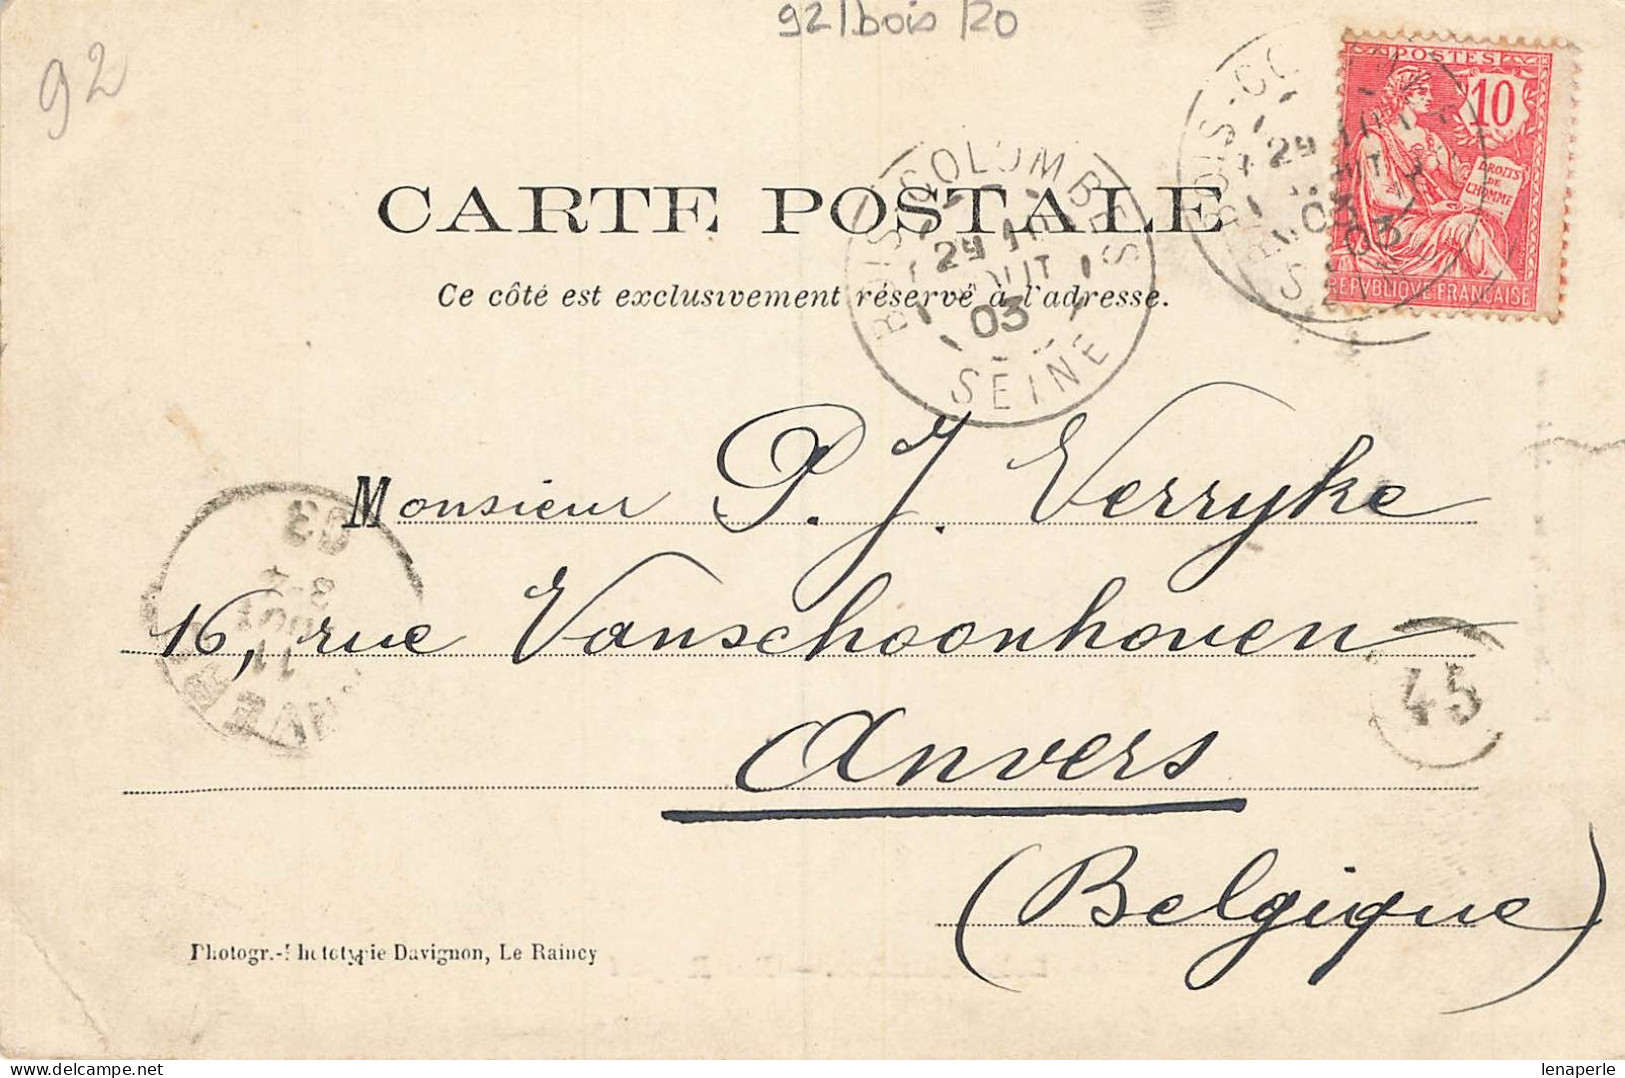 92/bois/20
92
POSTES
10
DROITS
DE
L'HOMME
REPVBLIQVE FRANÇAISE
BOIS-COLOMBES
29
AOUT
03
SEINE
CARTE POSTALE
Ce côté est exclusivement réservé à l'adresse.
Monsieur P. J. Verryke
16, rue Vanschoonhoven
Anvers
(Belgique)
45
03
11
Photogr.-Phototypie Davignon, Le Raincy
lenaperle